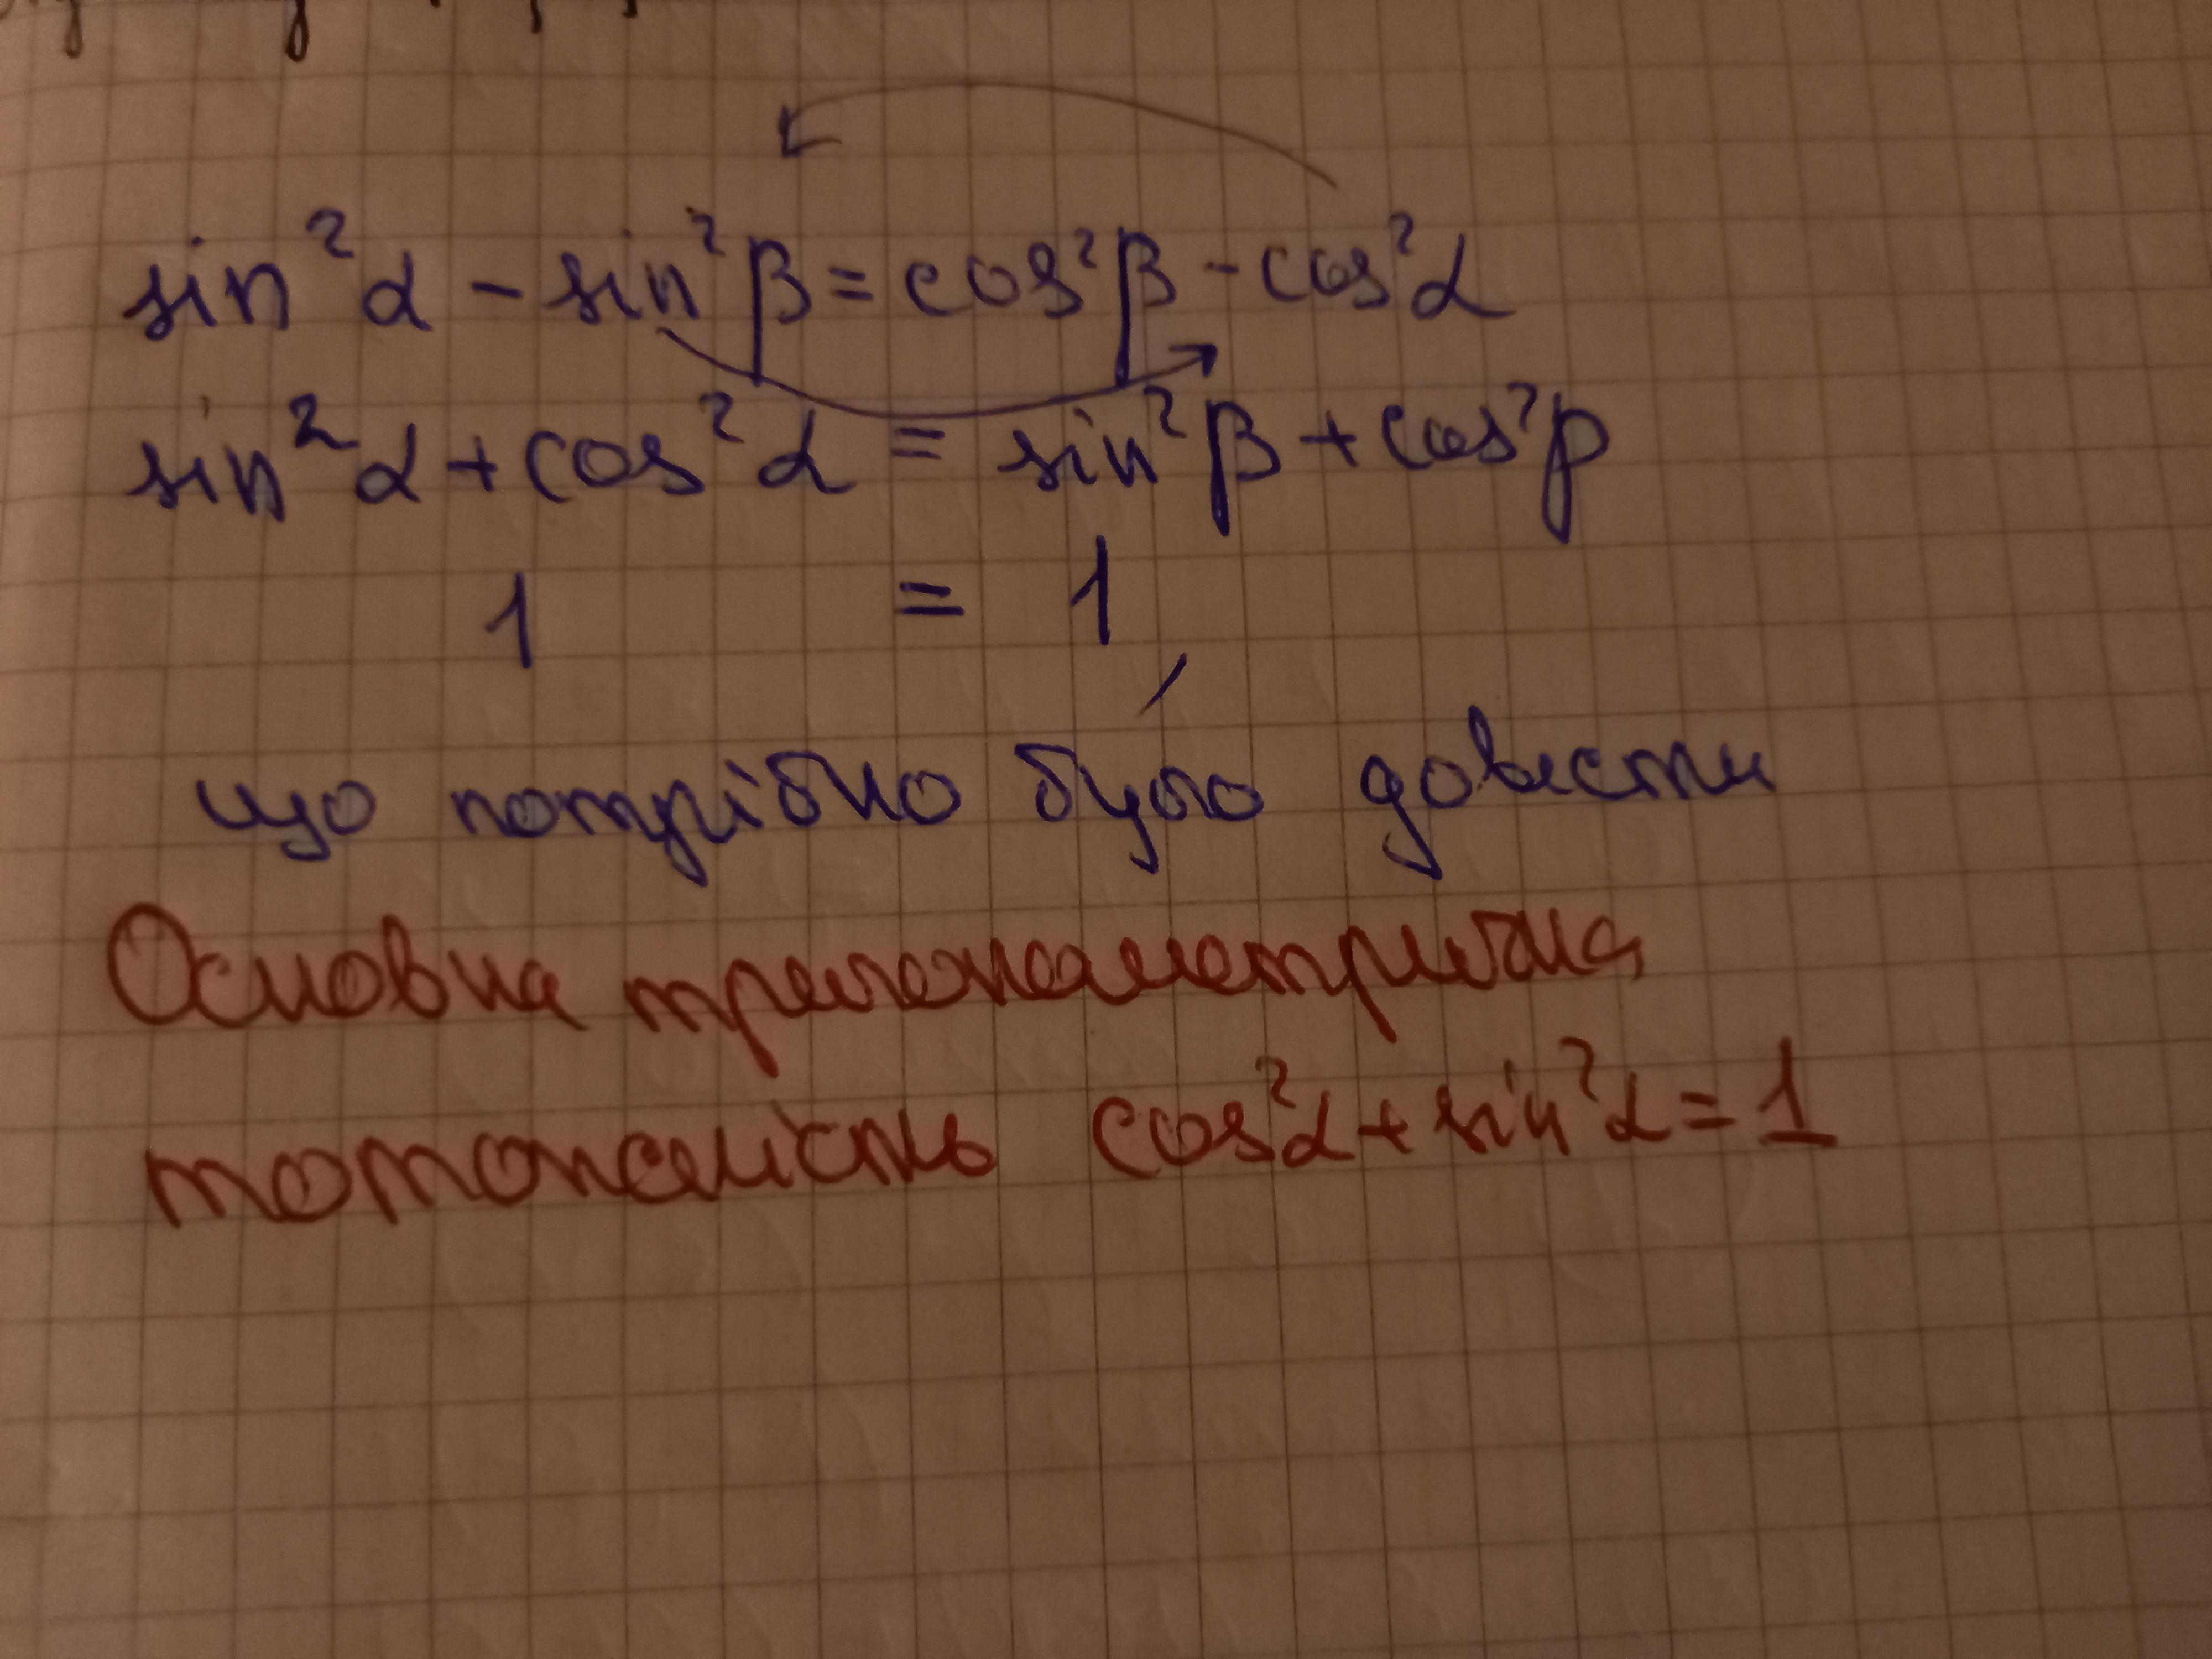 sin²α - sin²β = cos²β - cos²α
sin²α + cos²α = sin²β + cos²β
1 = 1
що потрібно було довести
Основна тригонометрична
тотожність cos²α + sin²α = 1